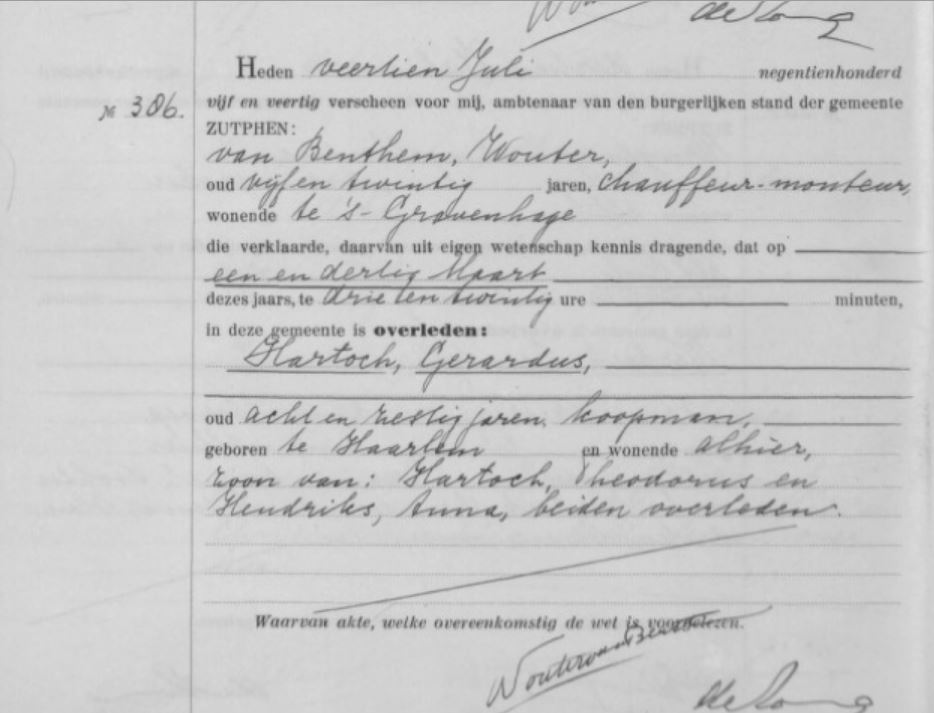 de Jong
Heden veertien Juli negentienhonderd
№ 306. vijf en veertig verscheen voor mij, ambtenaar van den burgerlijken stand der gemeente
ZUTPHEN:
van Benthem, Wouter,
oud vijf en twintig jaren, chauffeur-monteur,
wonende te 's-Gravenhage
die verklaarde, daarvan uit eigen wetenschap kennis dragende, dat op
een en dertig Maart
dezes jaars, te drie en twintig ure minuten,
in deze gemeente is overleden:
Hartoch, Gerardus,
oud acht en zestig jaren, koopman,
geboren te Haarlem en wonende alhier,
zoon van: Hartoch, Theodorus en
Hendriks, Anna, beiden overleden.
Waarvan akte, welke overeenkomstig de wet is voorgelezen.
Wouter van Benthem
de Jong